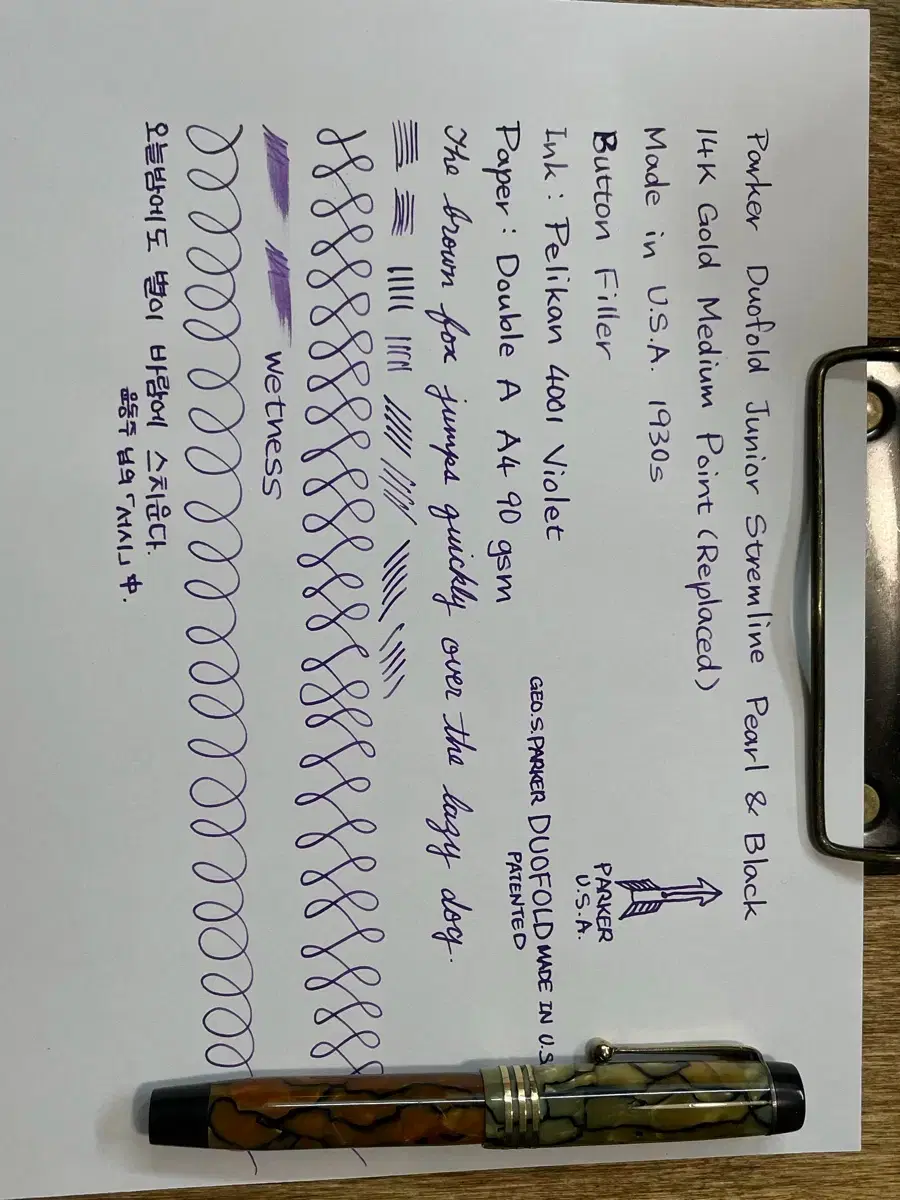 Parker Duofold Junior Stremline Pearl & Black
14K Gold Medium Point (Replaced)
Made in U.S.A. 1930s
Button Filler
PARKER
U.S.A.
Ink : Pelikan 4001 Violet
GEO.S.PARKER DUOFOLD MADE IN U.S
PATENTED
Paper : Double A A4 90 gsm
The brown fox jumps quickly over the lazy dog.
wetness
오늘밤에도 별이 바람에 스치운다.
윤동주 님의 「서시」 中.